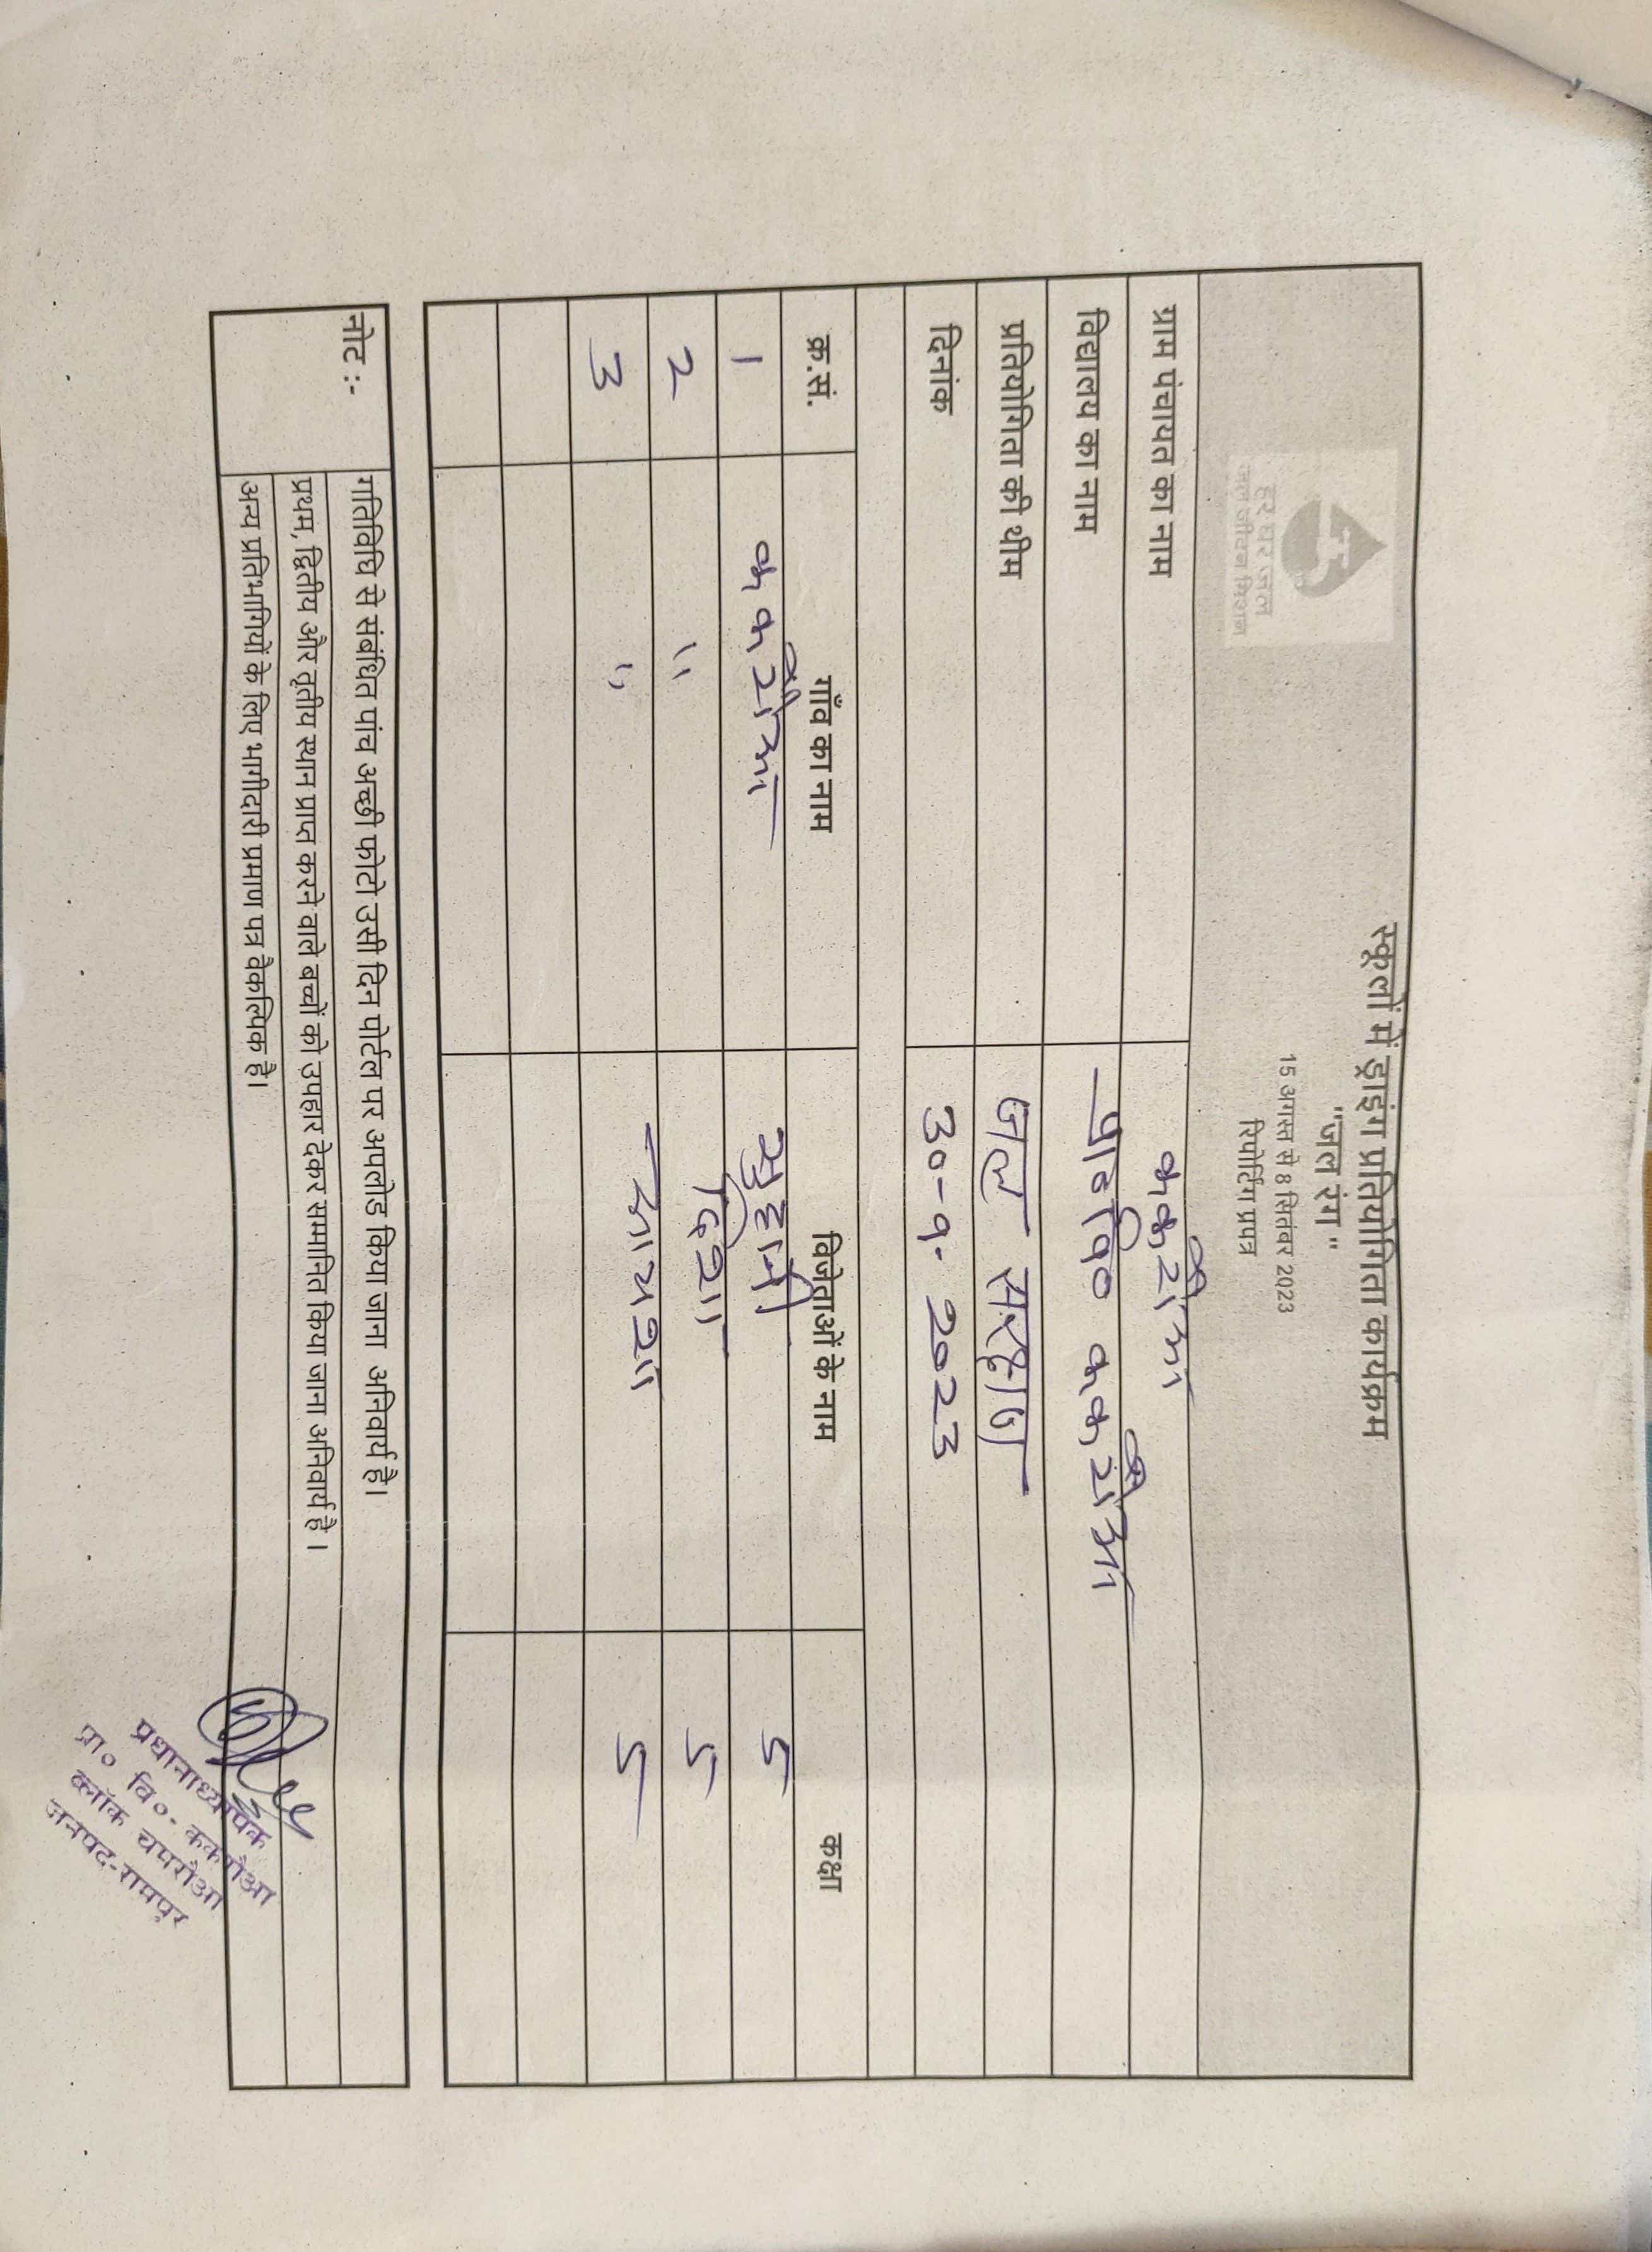 स्कूलों में ड्राइंग प्रतियोगिता कार्यक्रम
"जल रंग"
15 अगस्त से 8 सितंबर 2023
रिपोर्टिंग प्रपत्र
हर घर जल
जल जीवन मिशन
ग्राम पंचायत का नाम ककरौआ
विद्यालय का नाम प्रा० वि० ककरौआ
प्रतियोगिता की थीम जल संरक्षण
दिनांक 30-9-2023
क्र.सं. गाँव का नाम विजेताओं के नाम कक्षा
1 ककरौआ 5
2 " दिशा 5
3 " 5
नोट :-
गतिविधि से संबंधित पांच अच्छी फोटो उसी दिन पोर्टल पर अपलोड किया जाना अनिवार्य है।
प्रथम, द्वितीय और तृतीय स्थान प्राप्त करने वाले बच्चों को उपहार देकर सम्मानित किया जाना अनिवार्य है ।
अन्य प्रतिभागियों के लिए भागीदारी प्रमाण पत्र वैकल्पिक है।
प्रधानाध्यापक
प्रा० वि०- ककरौआ
ब्लॉक चमरौआ
जनपद-रामपुर